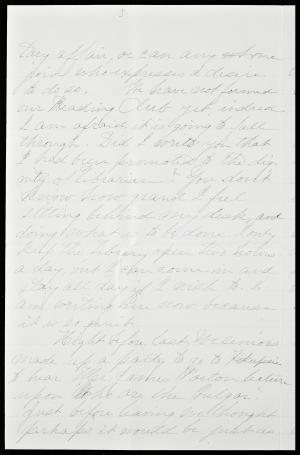 5
Day affair, or can any one
join who expresses a desire
to do so. We have not formed
our Reading Club yet, indeed
I am afraid it is going to fall
through. Did I write you that
I had been promoted to the dig-
nity of Librarian? You don't
know how grand I feel
sitting behind my desk, and
doing what is to be done. I only
keep the Library open two hours
a day, but I can come in and
stay all day if I wish to. I
am writing here now because
it is so quiet.
Night before last, we seniors
made up a party to go to
to hear Mr. James Parton lecture
upon "Who are the vulgar."
Just before leaving we thought
perhaps it would be just as